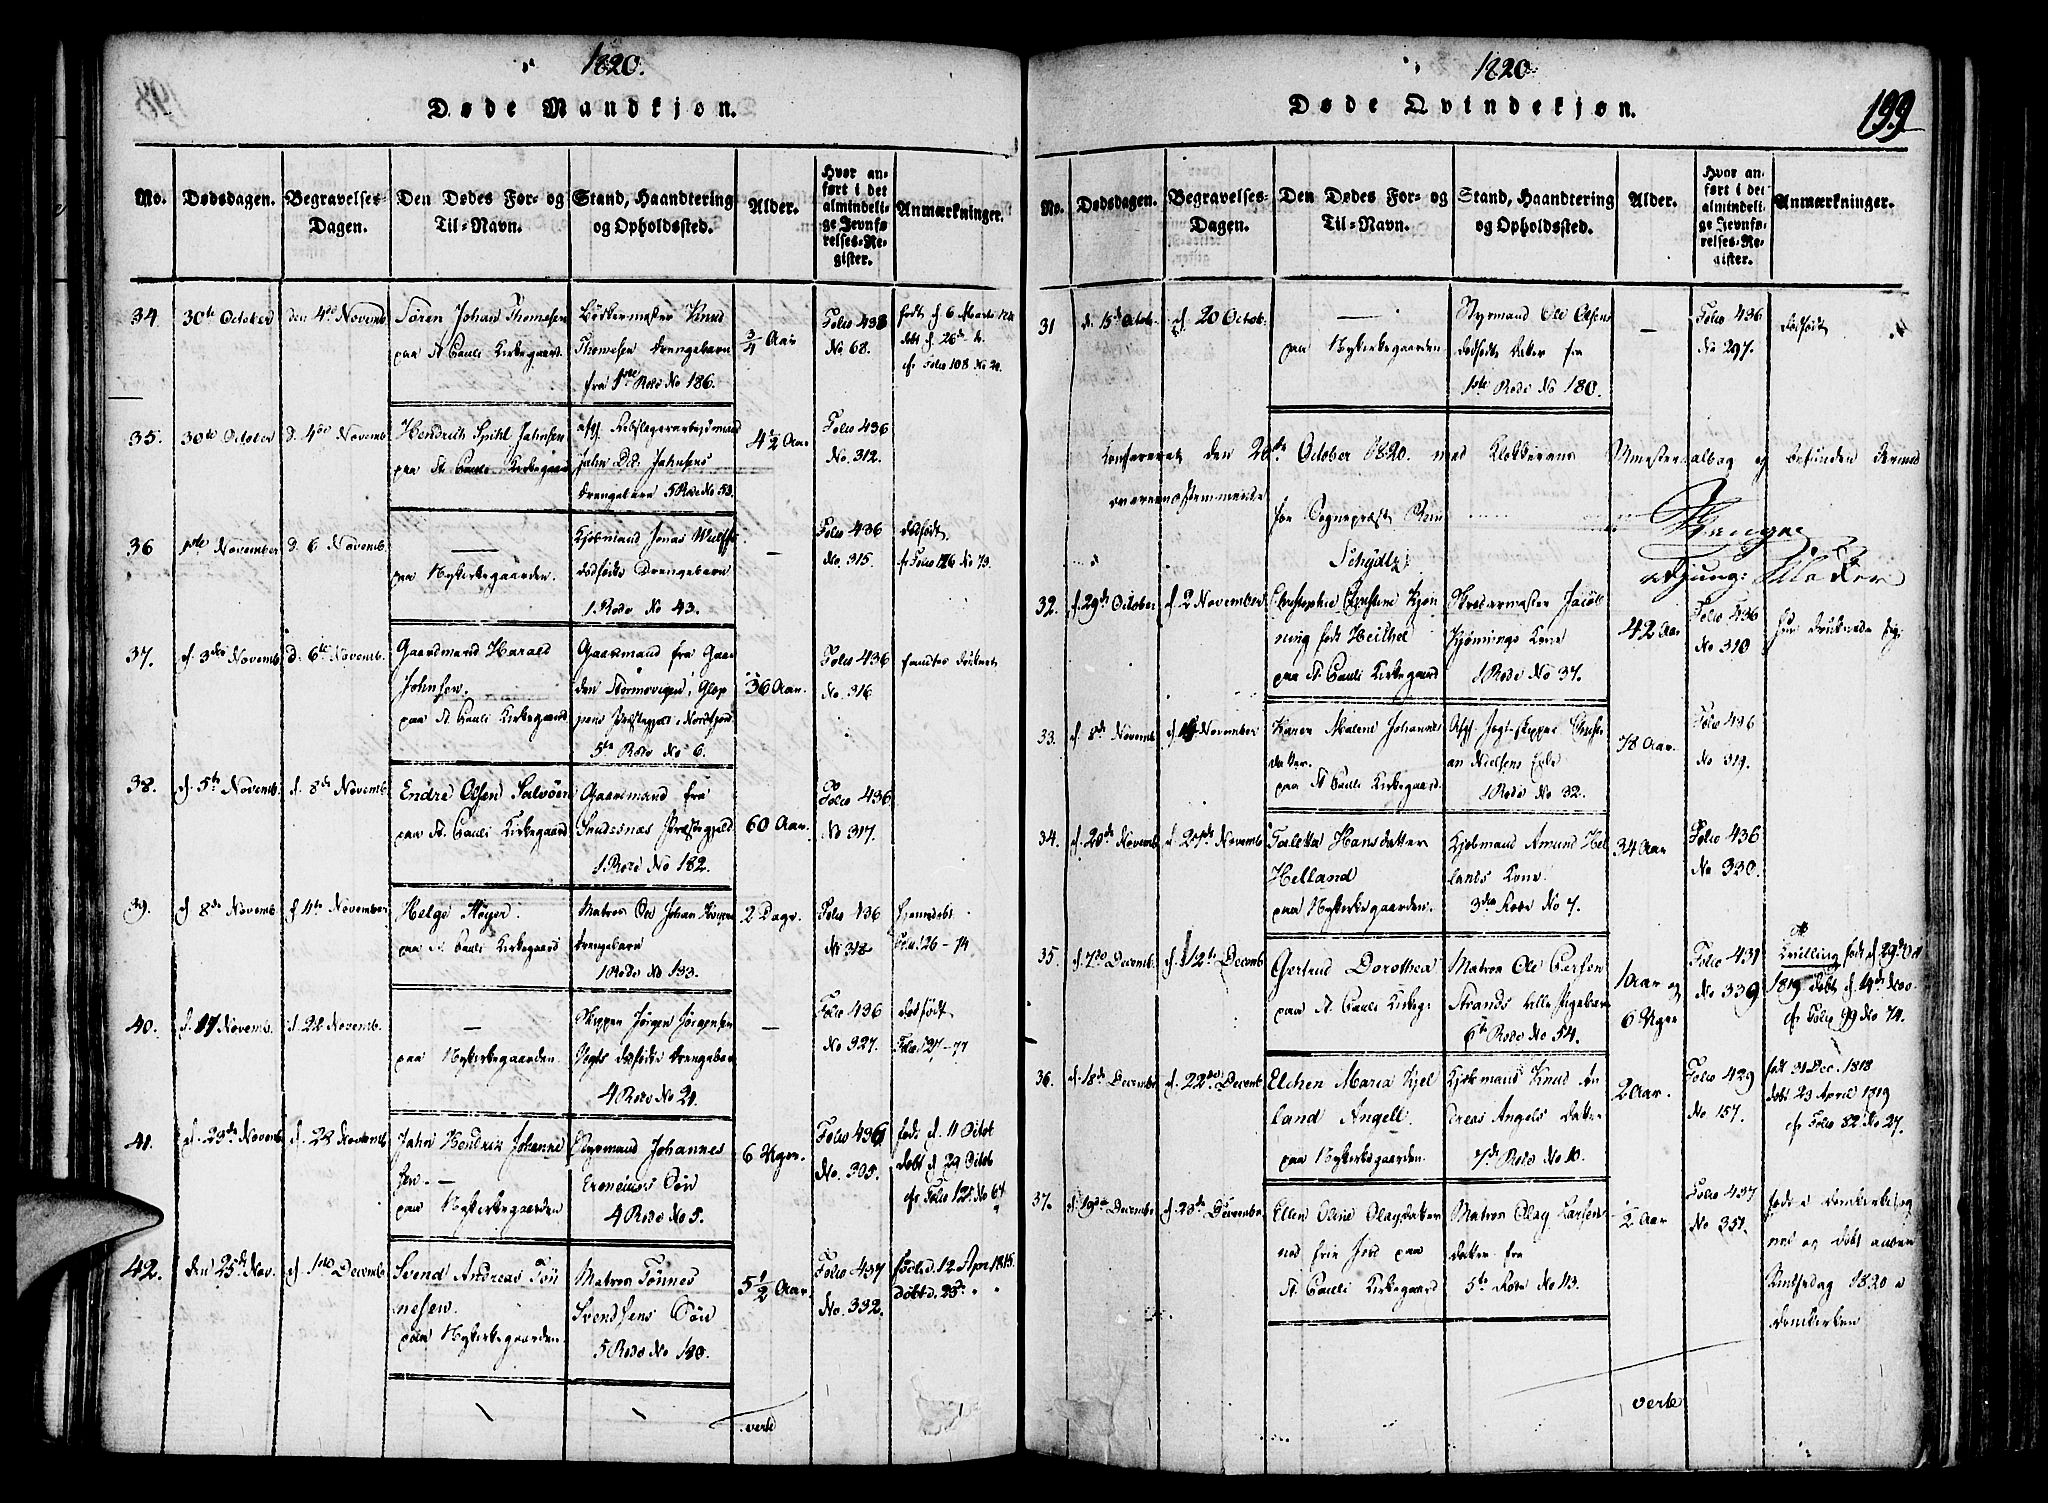 1820.
Døde Mandkjøn.
No. Dødsdagen. Begravelses-Dagen. Den Dødes For- og Til-Navn. Stand, Haandtering og Opholdssted. Alder. Hvor anført i det almindelige Jevnførelses-Register. Anmærkninger.
34. 30te October den 4de Novemb Søren Johan Thomesen
paa St Pauli Kirkegaard. Bødkermester Knud
Thomesen Drengebarn
fra 1ste Rode No 186. 3/4 Aar Folio 438
No 68. født d. 6 Marts
døbt d. 26de
cfr Folio 108 No 20.
35. 30te October d. 4de Novemb. Hendrich Spihl Jahnsen
paa St Pauli Kirkegaard
Jahn Jahnsens
Drengebarn 5 Rode No 53. 4 1/2 Aar Folio 436
No. 312.
36 1ste November d. 6 Novemb. —
paa Nykirkegaarden. Kjøbmand Jonas
dødfødte Drengebarn
1 Rode No 43. — Folio 436
No. 315. dødfødt.
cfr Folio 126 No 73.
37. d. 3die Novemb. d. 6te Novemb. Gaardmand Harald
Johnsen.
paa St Pauli Kirkegaard Gaardmand fra Gaar
den i Glop
pens Præstegjeld i Nordfjord
5te Rode No 6. 36 Aar. Folio 436
No. 316. fandtes druknet
38. d. 5te Novemb. d. 8de Novemb Endre Olsen Salvøen
paa St Pauli Kirkegaard Gaardmand fra
Præstegjeld
1 Rode No 182. 60 Aar. Folio 436
No 317.
39. d 8de Novemb. November Helge Høyer.
paa St Pauli Kirkegaard Matros Johan
Drengebarn
1 Rode No 133. 2 Dage. Folio 436
No 318 hjemmedøbt
Folio 126 – 74
40. d. 17 Novemb. d. 22 Novemb. —
paa Nykirkegaarden. Skipper Jørgen Jørgensen
Vogts dødfødte Drengebarn
4 Rode No 21. — Folio 436
No 327. dødfødt
Folio 127 – 77
41. d. 23de Novemb d. 28 Novemb Jahn Hendrich Johanne
sen. —
paa Nykirkegaarden Styrmand Johannes
Søn
4 Rode No 5. 6 Uger. Folio 436
No. 305. født d. 11 Octob
døbt d 29 Octob
cfr Folio 125 No 64
42. den 25de Nov. d. 1ste Decemb Svend Andreas Tön
nesen.
paa Nykirkegaarden. Matros Tönnes
Svendsens Søn
5 Rode No 120. 5 1/2 Aar. Folio 437
No. 332. født d. 12 Apr. 1815.
døbt d. 23de " "
verte
1820.
Døde Qvindekjøn.
199
No. Dødsdagen. Begravelses-Dagen. Den Dødes For- og Til-Navn. Stand, Haandtering og Opholdssted. Alder. Hvor anført i det almindelige Jevnførelses-Register. Anmærkninger.
31 d. 15de Octob. d. 20 Octob. —
paa Nykirkegaarden Styrmand Ole Olsens
dødfødte Datter fra
1ste Rode No 180. — Folio 436
No 297. dødfødt
Confereret den 26de October 1820. med Klokkerens Ministerialbog og befunden dermed
overeensstemmende
for Sognepræst
Schydtz:
adjung:
32. d. 29de October d. 2 November Christophie Christine Kjøn
ning født Heithe
paa St Pauli Kirkegaard Skrædermester Jacob
Kjønnings Kone
1 Rode No 37. 42 Aar Folio 436
No 310 hun druknede sig.
33. d. 8de Novemb. November Karen Malene Johannes
datter.
paa St Pauli Kirkegaard. Afg. Jagt-Skipper Christi
an Nielsens Enke
1 Rode No 32. 78 Aar. Folio 436
No 319.
34. d. 20de Novemb d. 27de Novemb Taletta Hansdatter
Helland
paa Nykirkegaarden. Kjøbmand Amund Hel
lands Kone.
3die Rode No 7. 34 Aar Folio 436
No 330.
35. d. 7de Decemb. d. 12te Decemb Gertrud Dorothea
paa St Pauli Kirkeg: Matros Ole Persen
Strands lille Pigebarn
6te Rode No 54. 1 Aar og
6 Uger Folio 431
No 339 Tvilling født d. 29de Oct
1819 døbt d. 14de Nov.
cfr Folio 99 No 74.
36. d. 18de Decembr d. 22de Decemb Elchen Maria Kjel
land Angell.
paa Nykirkegaarden. Kjøbmand Knud An
dreas Angels Datter
7de Rode No 10. 2 Aar. Folio 429
No 157. født 31 Dec. 1818
døbt 23 April 1819
cfr Folio 82. No 27.
37. d. 19de Decembr d. 23de Decembr Ellen Oline Olagdatter
paa
St Pauli Kirkegaard Matros Olag Larsens
Datter fra
5te Rode No 113. 1/2 Aar Folio 437
No 351. født i Domkirkesog
net og døbt anden
Pintsedag 1820 i
Domkirken
verte